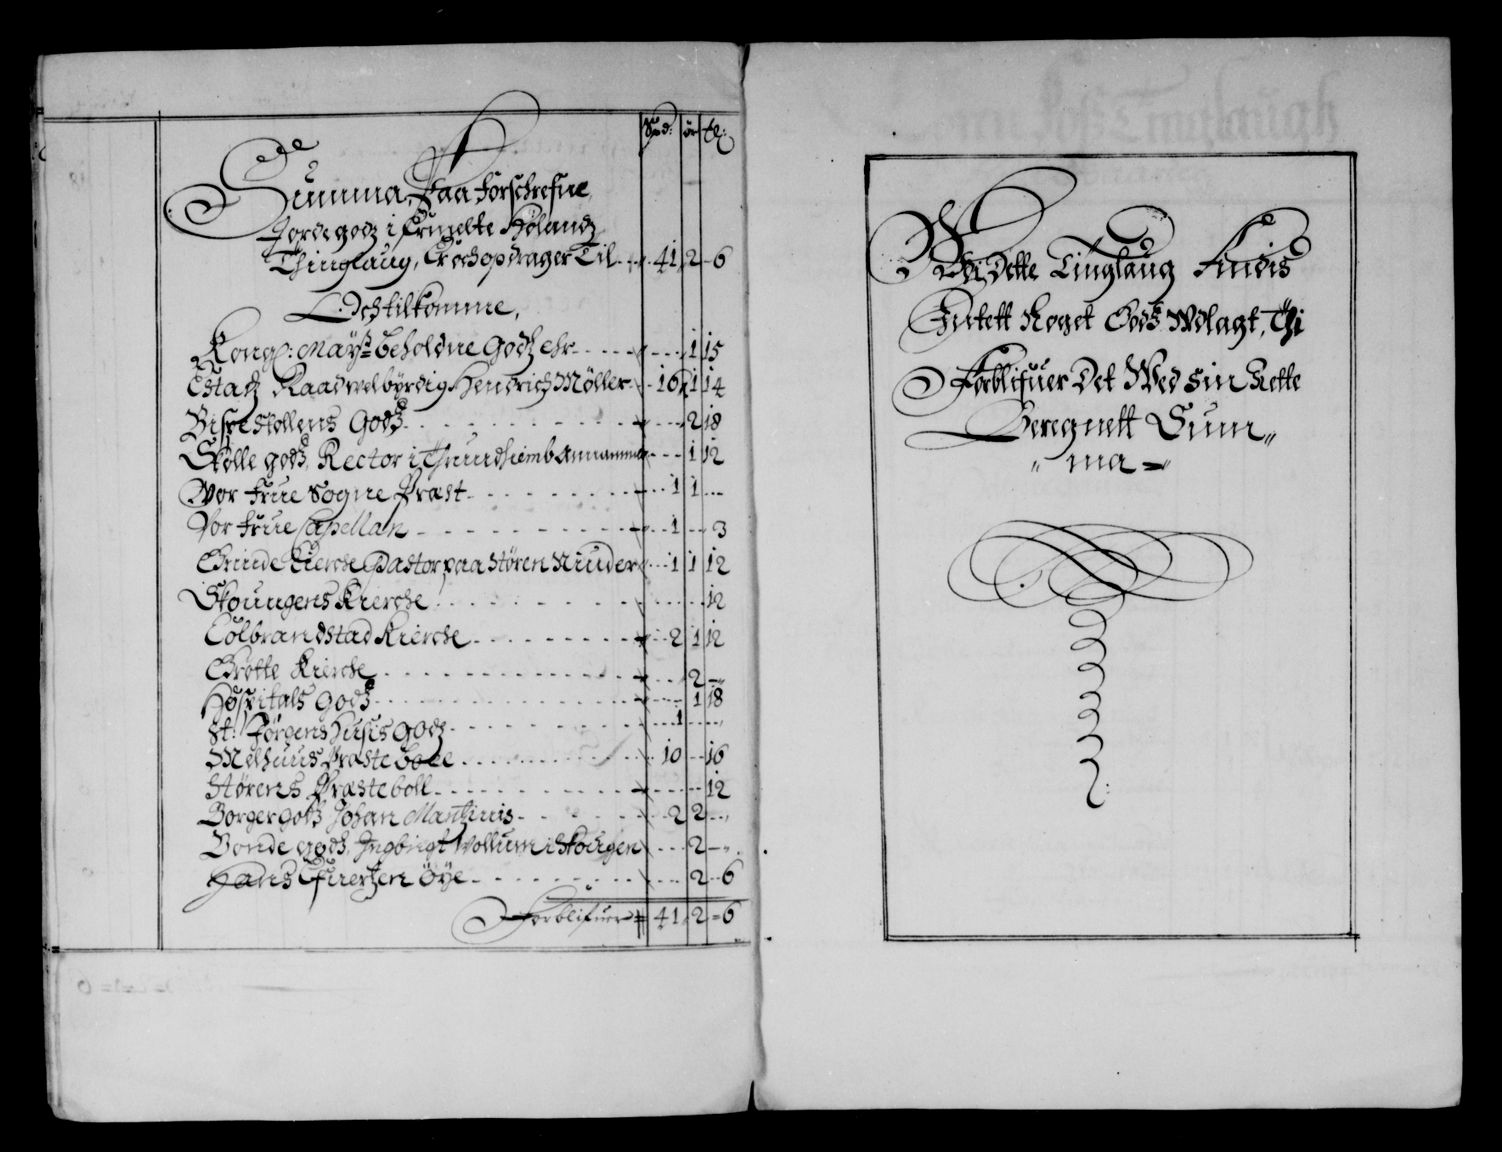 Spd: ør ℔:
Summa, Paa forschrefne,
Jorde godz i Hølandz
Thinglaug, Er och opdrager Til - 41 2 6
Och tilkomme,
Kong: Mayst beholdne Godz ehr - - 1 15
Estatz Raad velbyrdig Hendrich Møller - 16 1 14
Bispe Stollens Godz - - 2 18
Skolle godz, Rector i Thrundhiemb Annammer - - 1 12
Vor frue Sogne Præst - 1 1 -
Vor frue Capellan - 1 - 3
Grinde Kierche Pastor paa Støren Niuder - 1 1 12
Skoungens Kierche - - - 12
Colbrandstad Kierche - 2 1 12
Grøtte Kierche - - 2 -
Hospitals godz - - 1 18
St: Jørgens Husis godz - 1 - -
Melhuus Præste boell - 10 - 16
Størens Præsteboll - - - 12
Borger gotz Johan Mantzinis - 2 2 -
Bonde godz, Ingbrigt Vollum i Skougen - - 2 -
Hans Efuertzen Øye - - 2 - 6
Forblifuer = 41 2 = 6
Udi Dette Tinglaug Findis
Intett Noget Godz Ødlagt, Thi
Forblifuer Det Wed sin Rette
Beregnett Sum„
„ma =